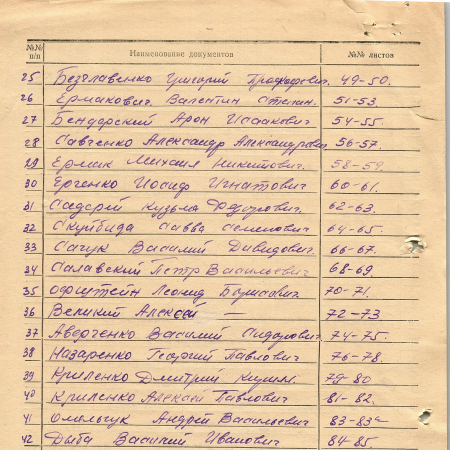 №№ п/п Наименование документов №№ листов
25 Безглавенко Григорий Прокофович. 49-50.
26 Ермакович Валентин Степан. 51-53.
27 Бендарский Арон Исаакович 54-55.
28 Савченко Александр Александрович 56-57.
29 Ермак Михаил Никитович. 58-59.
30 Ерченко Иосиф Игнатович 60-61.
31 Садорый Кузьма Федорович. 62-63.
32 Скуйбида Савва Семенович 64-65.
33 Сачук Василий Давидович. 66-67.
34 Салавский Петр Васильевич 68-69
35 Офштейн Леонид Борисович. 70-71.
36 Великий Алексей — 72-73
37 Аведченко Василий Сидорович. 74-75.
38 Назаренко Георгий Павлович 76-78.
39 Криленко Дмитрий 79-80
40 Криленко Алексей Павлович 81-82.
41 Омельчук Андрей Васильевич 83-83а
42 Дыба Василий Иванович 84-85.